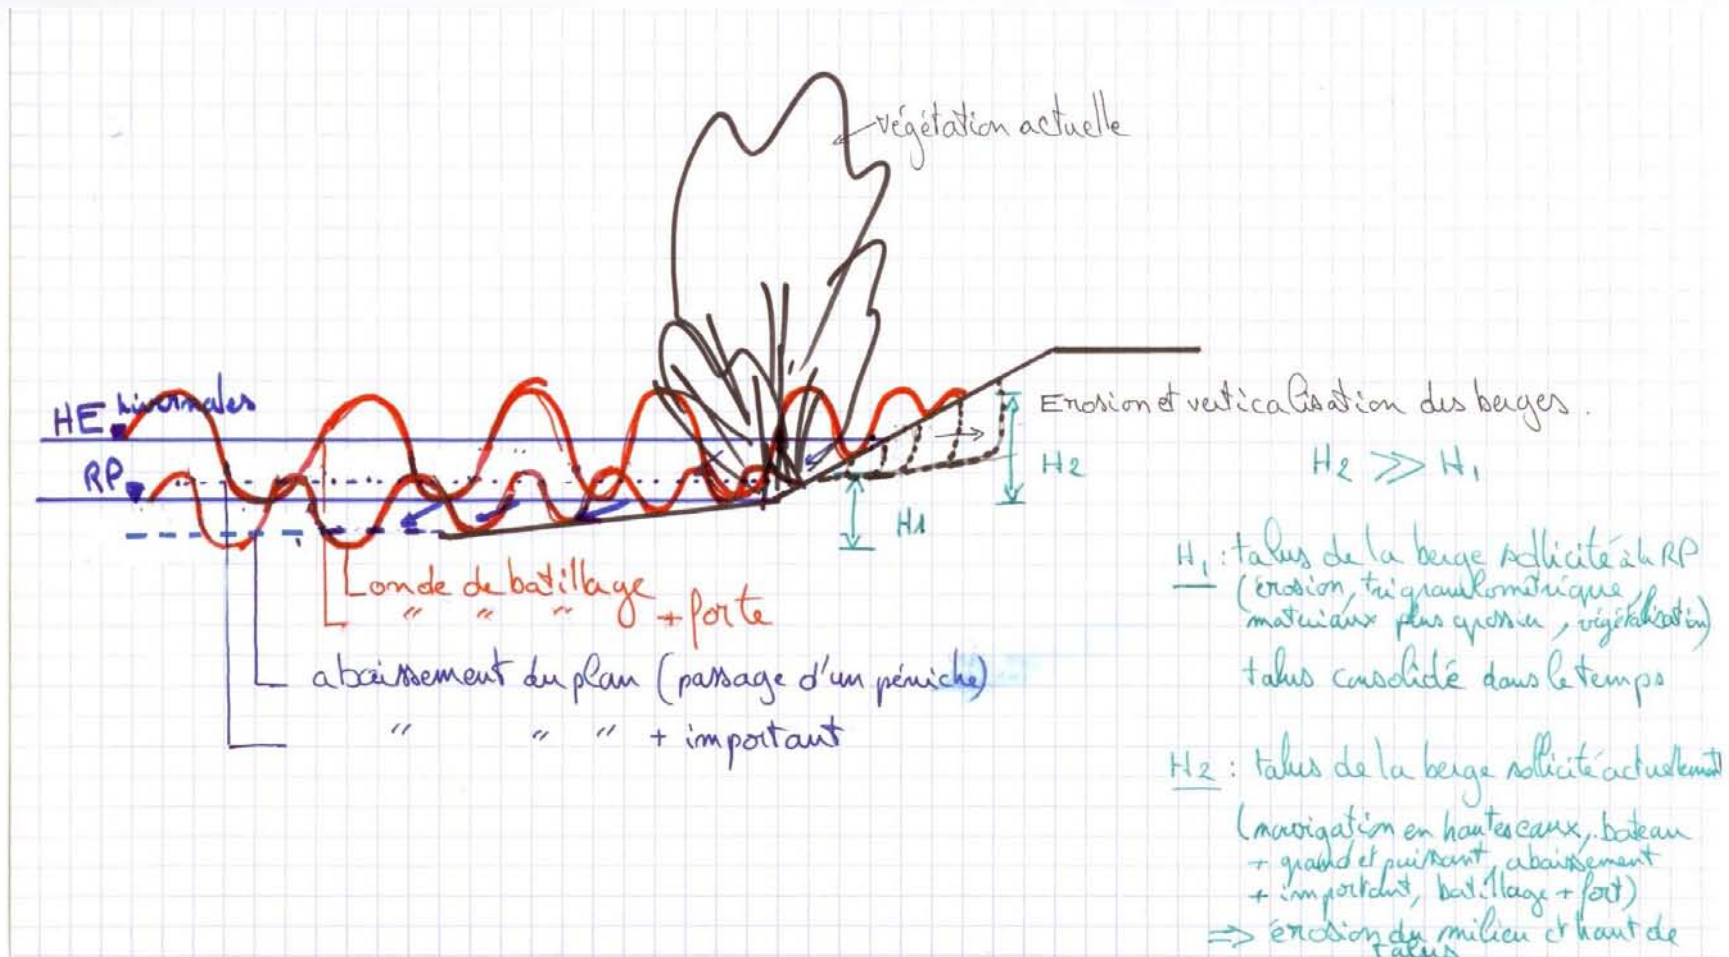 végétation actuelle
HE hivernales
RP
Erosion et verticalisation des berges.
H2
H2 >> H1
H1
Londe de batillage
" " " + forte
abaissement du plan (passage d'un péniche)
" " " + important
H1 : talus de la berge sollicité à la RP
(érosion, tri granulométrique,
matériaux plus grossier, végétalisation)
talus consolidé dans le temps
H2 : talus de la berge sollicité actuellement
(navigation en hautes eaux, bateau
+ grand et puissant, abaissement
+ important, batillage + fort)
=> érosion du milieu et haut de
talus